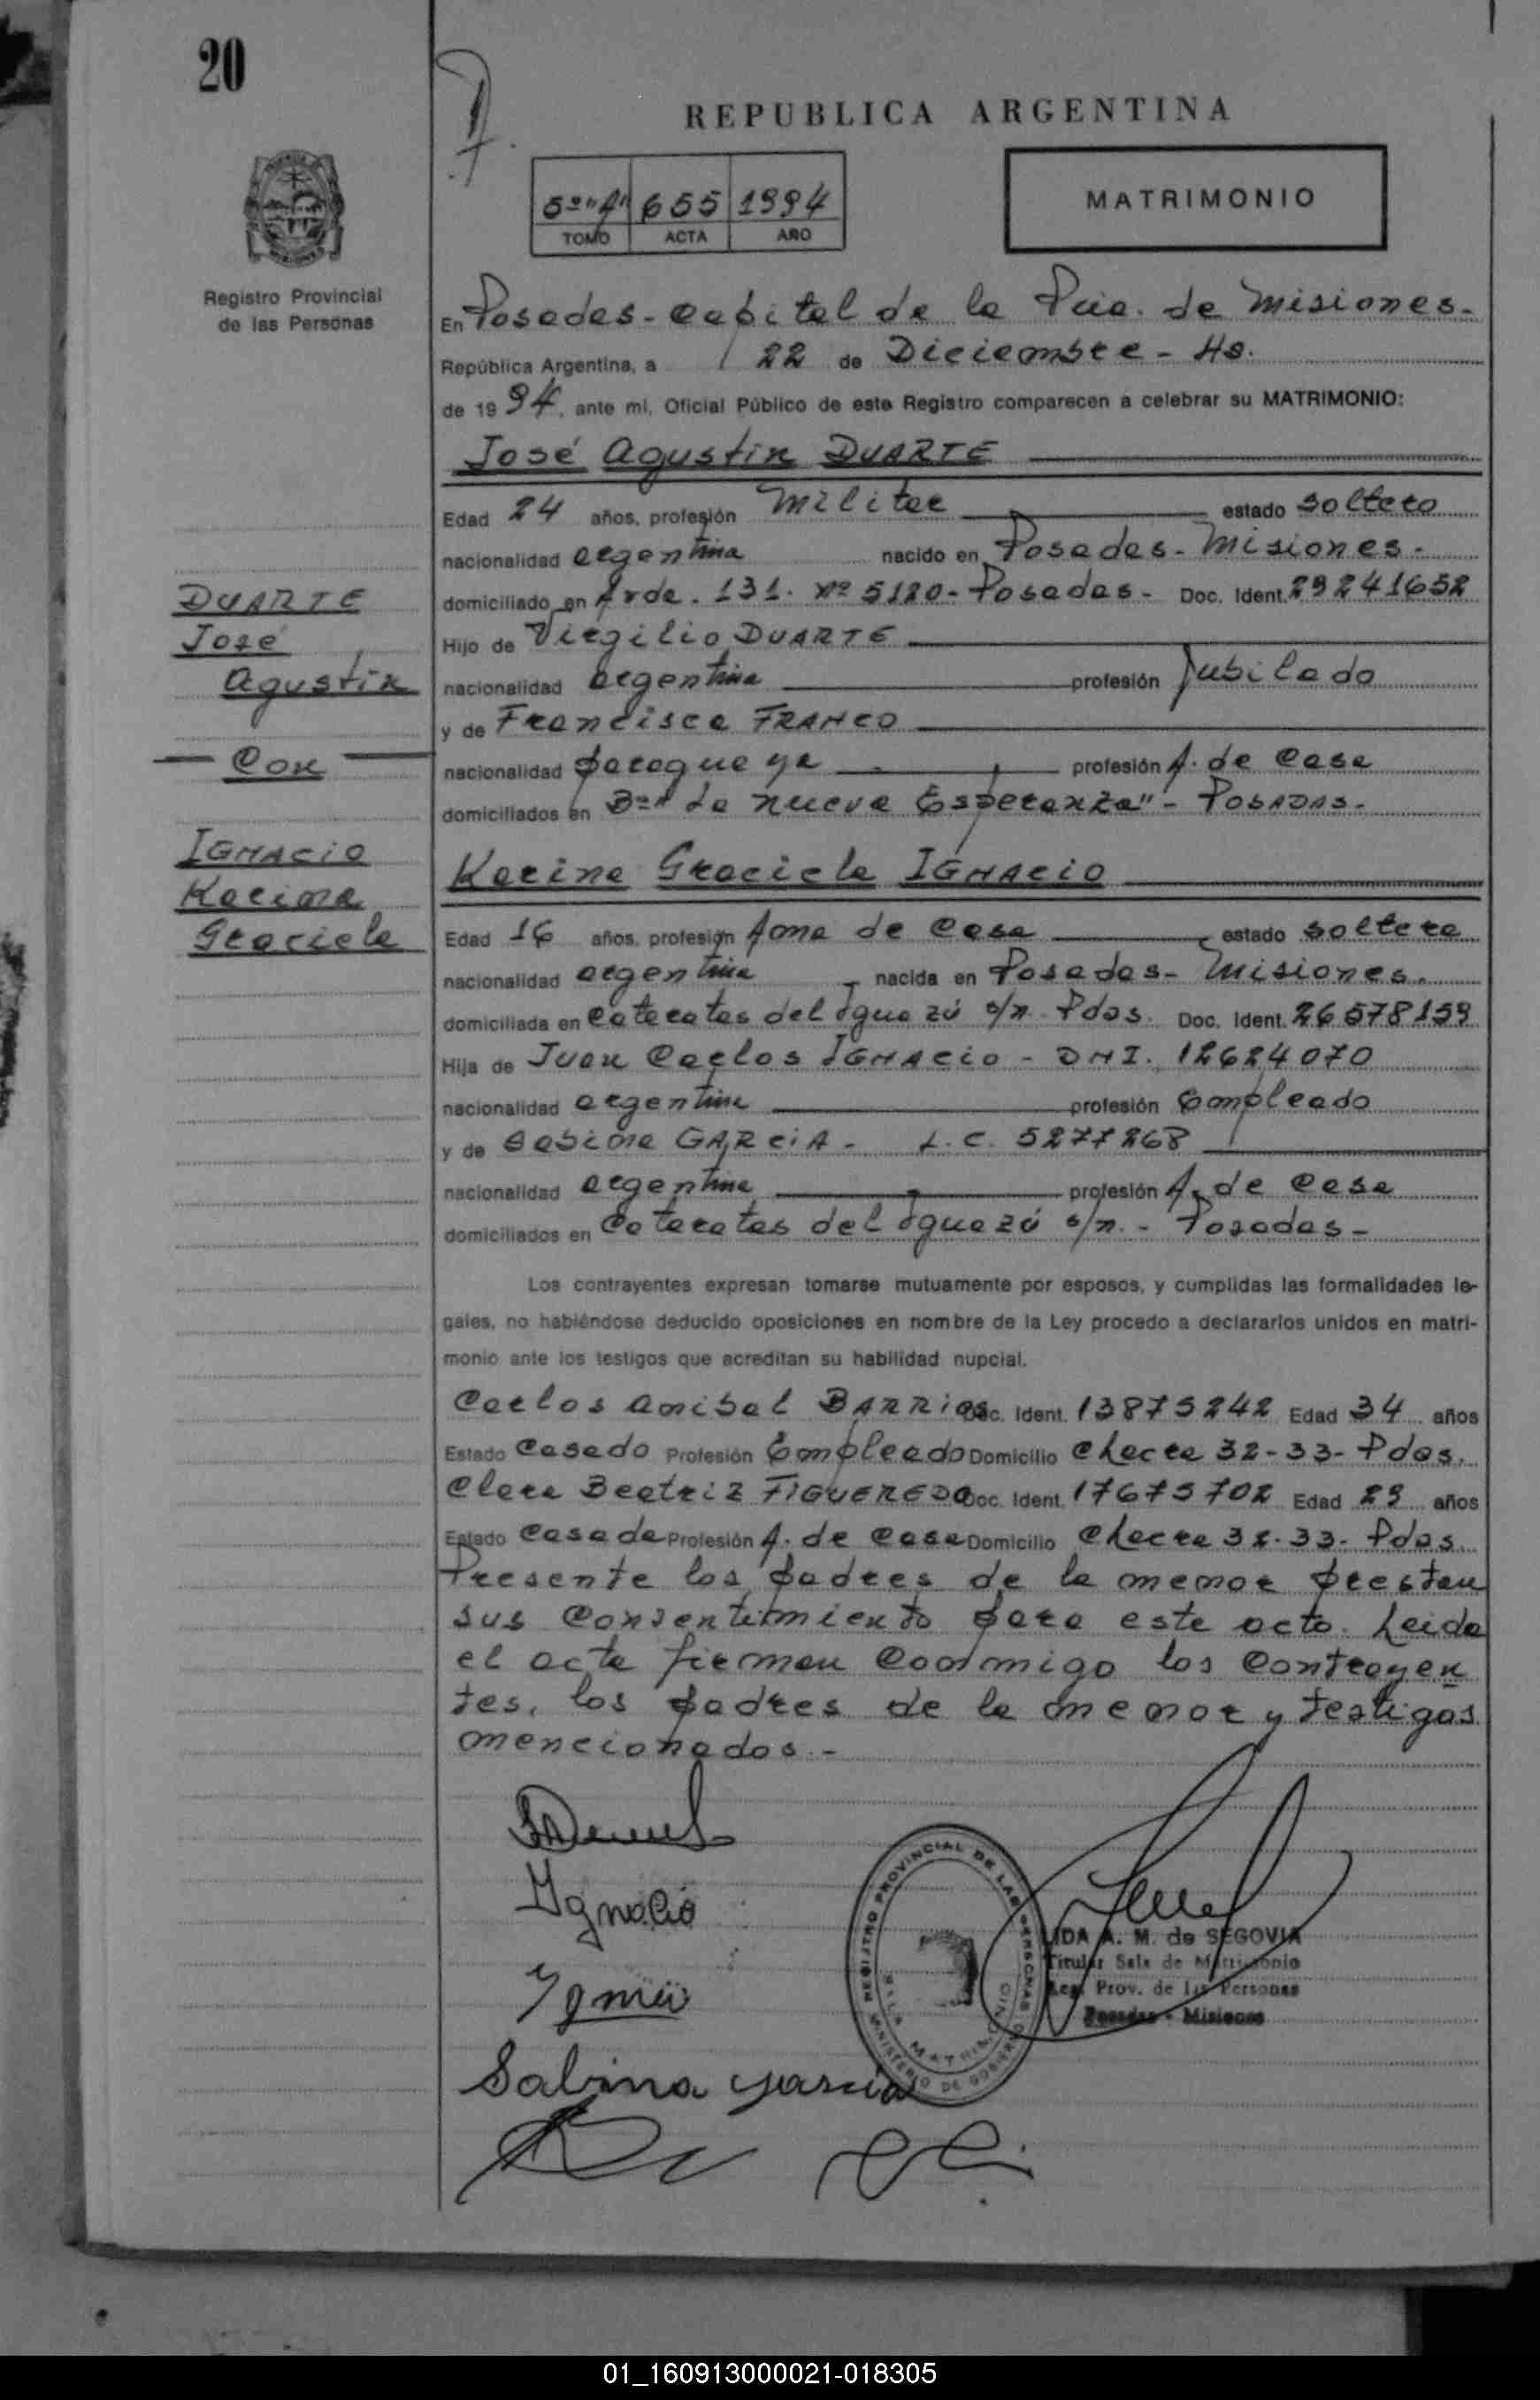 20
REPUBLICA ARGENTINA
5º "A" 655 1994
TOMO ACTA AÑO
MATRIMONIO
Registro Provincial
de las Personas
En Posadas - Capital de la Pcia. de Misiones.-
República Argentina, a 22 de Diciembre - Hs.
de 1994, ante mí, Oficial Público de este Registro comparecen a celebrar su MATRIMONIO:
José Agustin DUARTE
Edad 24 años, profesión Militar estado soltero
nacionalidad argentina nacido en Posadas - Misiones.-
domiciliado en Avda. 131. Nº 5120 - Posadas - Doc. Ident. 29241652
Hijo de Virgilio DUARTE
nacionalidad argentina profesión Jubilado
y de Francisca FRANCO
nacionalidad paraguaya profesión A. de Casa
domiciliados en Bº "La nueva Esperanza" - POSADAS.-
DUARTE
José
Agustin
- Con -
IGNACIO
Karina
Graciela
Karina Graciela IGNACIO
Edad 16 años, profesión Ama de Casa estado soltera
nacionalidad argentina nacida en Posadas - Misiones.
domiciliada en Cataratas del Iguazú s/n Pdas. Doc. Ident. 26578159
Hija de Juan Carlos IGNACIO - DNI. 12624070
nacionalidad argentina profesión Empleado
y de Sabina GARCIA - L.C. 5277268
nacionalidad argentina profesión A. de Casa
domiciliados en Cataratas del Iguazú s/n. - Posadas -
Los contrayentes expresan tomarse mutuamente por esposos, y cumplidas las formalidades le-
gales, no habiéndose deducido oposiciones en nombre de la Ley procedo a declararlos unidos en matri-
monio ante los testigos que acreditan su habilidad nupcial.
Carlos Anibal BARRIOS Doc. Ident. 13875242 Edad 34 años
Estado Casado Profesión Empleado Domicilio Chacra 32-33- Pdas.
Clara Beatriz FIGUEREDO Doc. Ident. 17675702 Edad 29 años
Estado Casada Profesión A. de Casa Domicilio Chacra 32-33- Pdas.
Presente los padres de la menor prestan
sus consentimiento para este acto. Leida
el acta firman conmigo los contrayen
tes, los padres de la menor y testigos
mencionados.-
Ignacio
Sabina Garcia
REGISTRO PROVINCIAL DE LAS PERSONAS
MINISTERIO DE GOBIERNO
SALA MATRIMONIO
LIDA A. M. de SEGOVIA
Titular Sala de Matrimonio
Reg. Prov. de las Personas
Posadas - Misiones
01_160913000021-018305